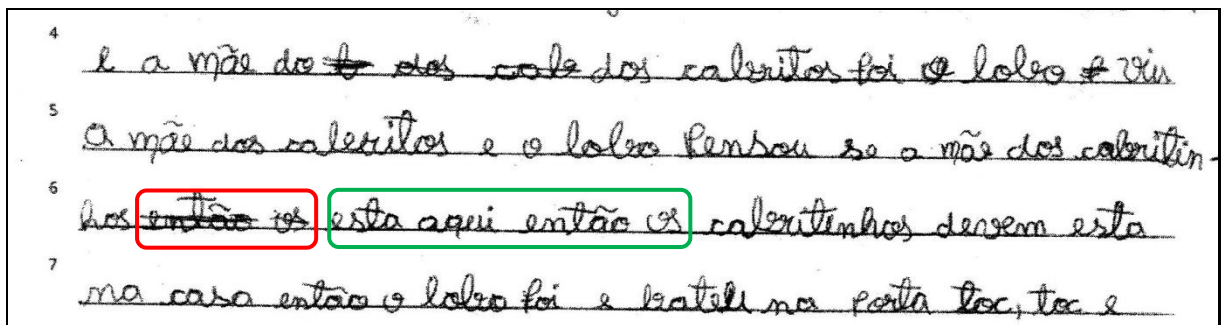 4 e a mãe do b dos cab dos cabritos foi o lobo f viu
5 a mãe dos cabritos e o lobo Pensou se a mãe dos cabritin-
6 hos então os esta aqui então os cabritinhos devem esta
7 na casa então o lobo foi e bateu na Porta toc, toc e